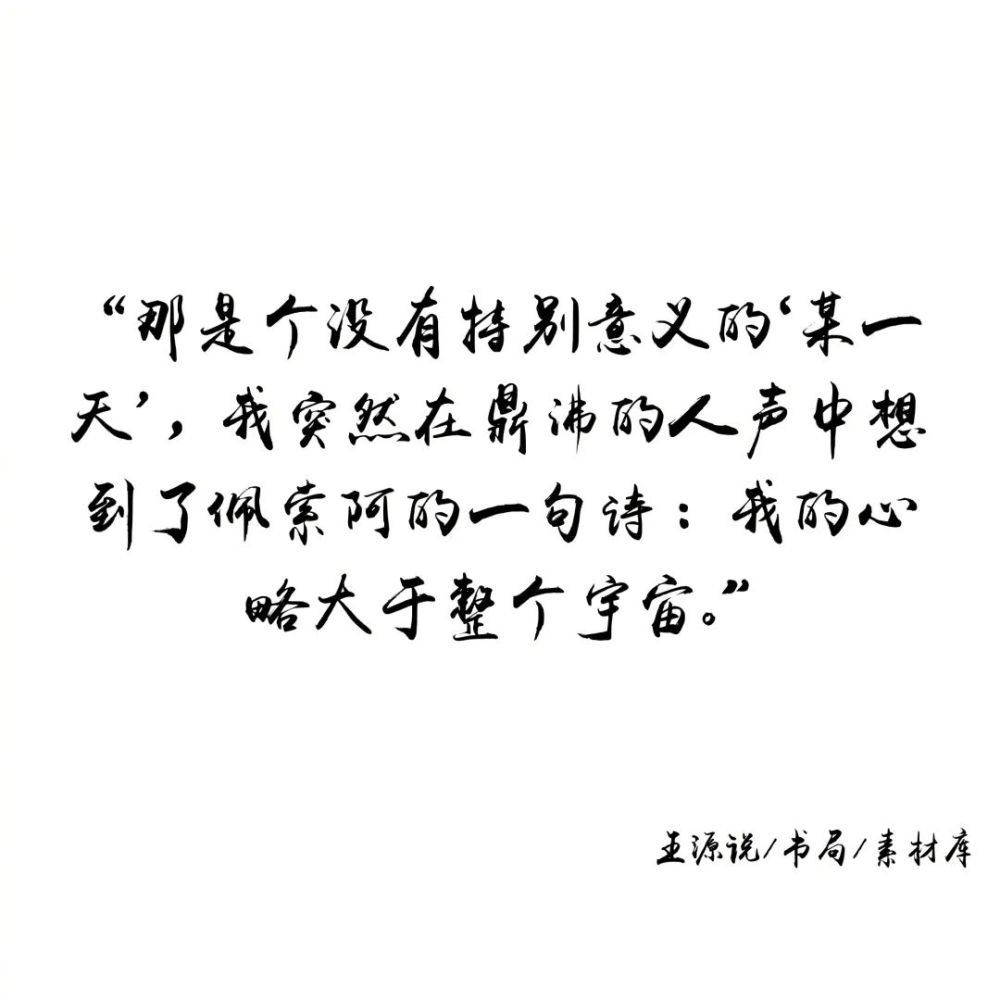 “那是个没有特别意义的‘某一
天’，我突然在鼎沸的人声中想
到了佩索阿的一句诗：我的心
略大于整个宇宙。”
王源说/书局/素材库